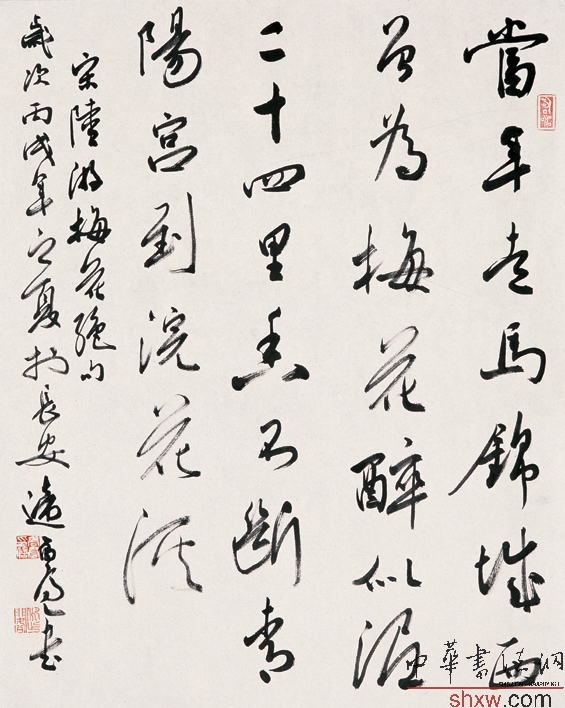 當年走馬錦城西
曾為梅花醉似泥
二十四里香不斷青
陽宮到浣花溪
宋陸游梅花絕句
歲次丙戌年之夏於長安
書
中華書法網
shxw.com